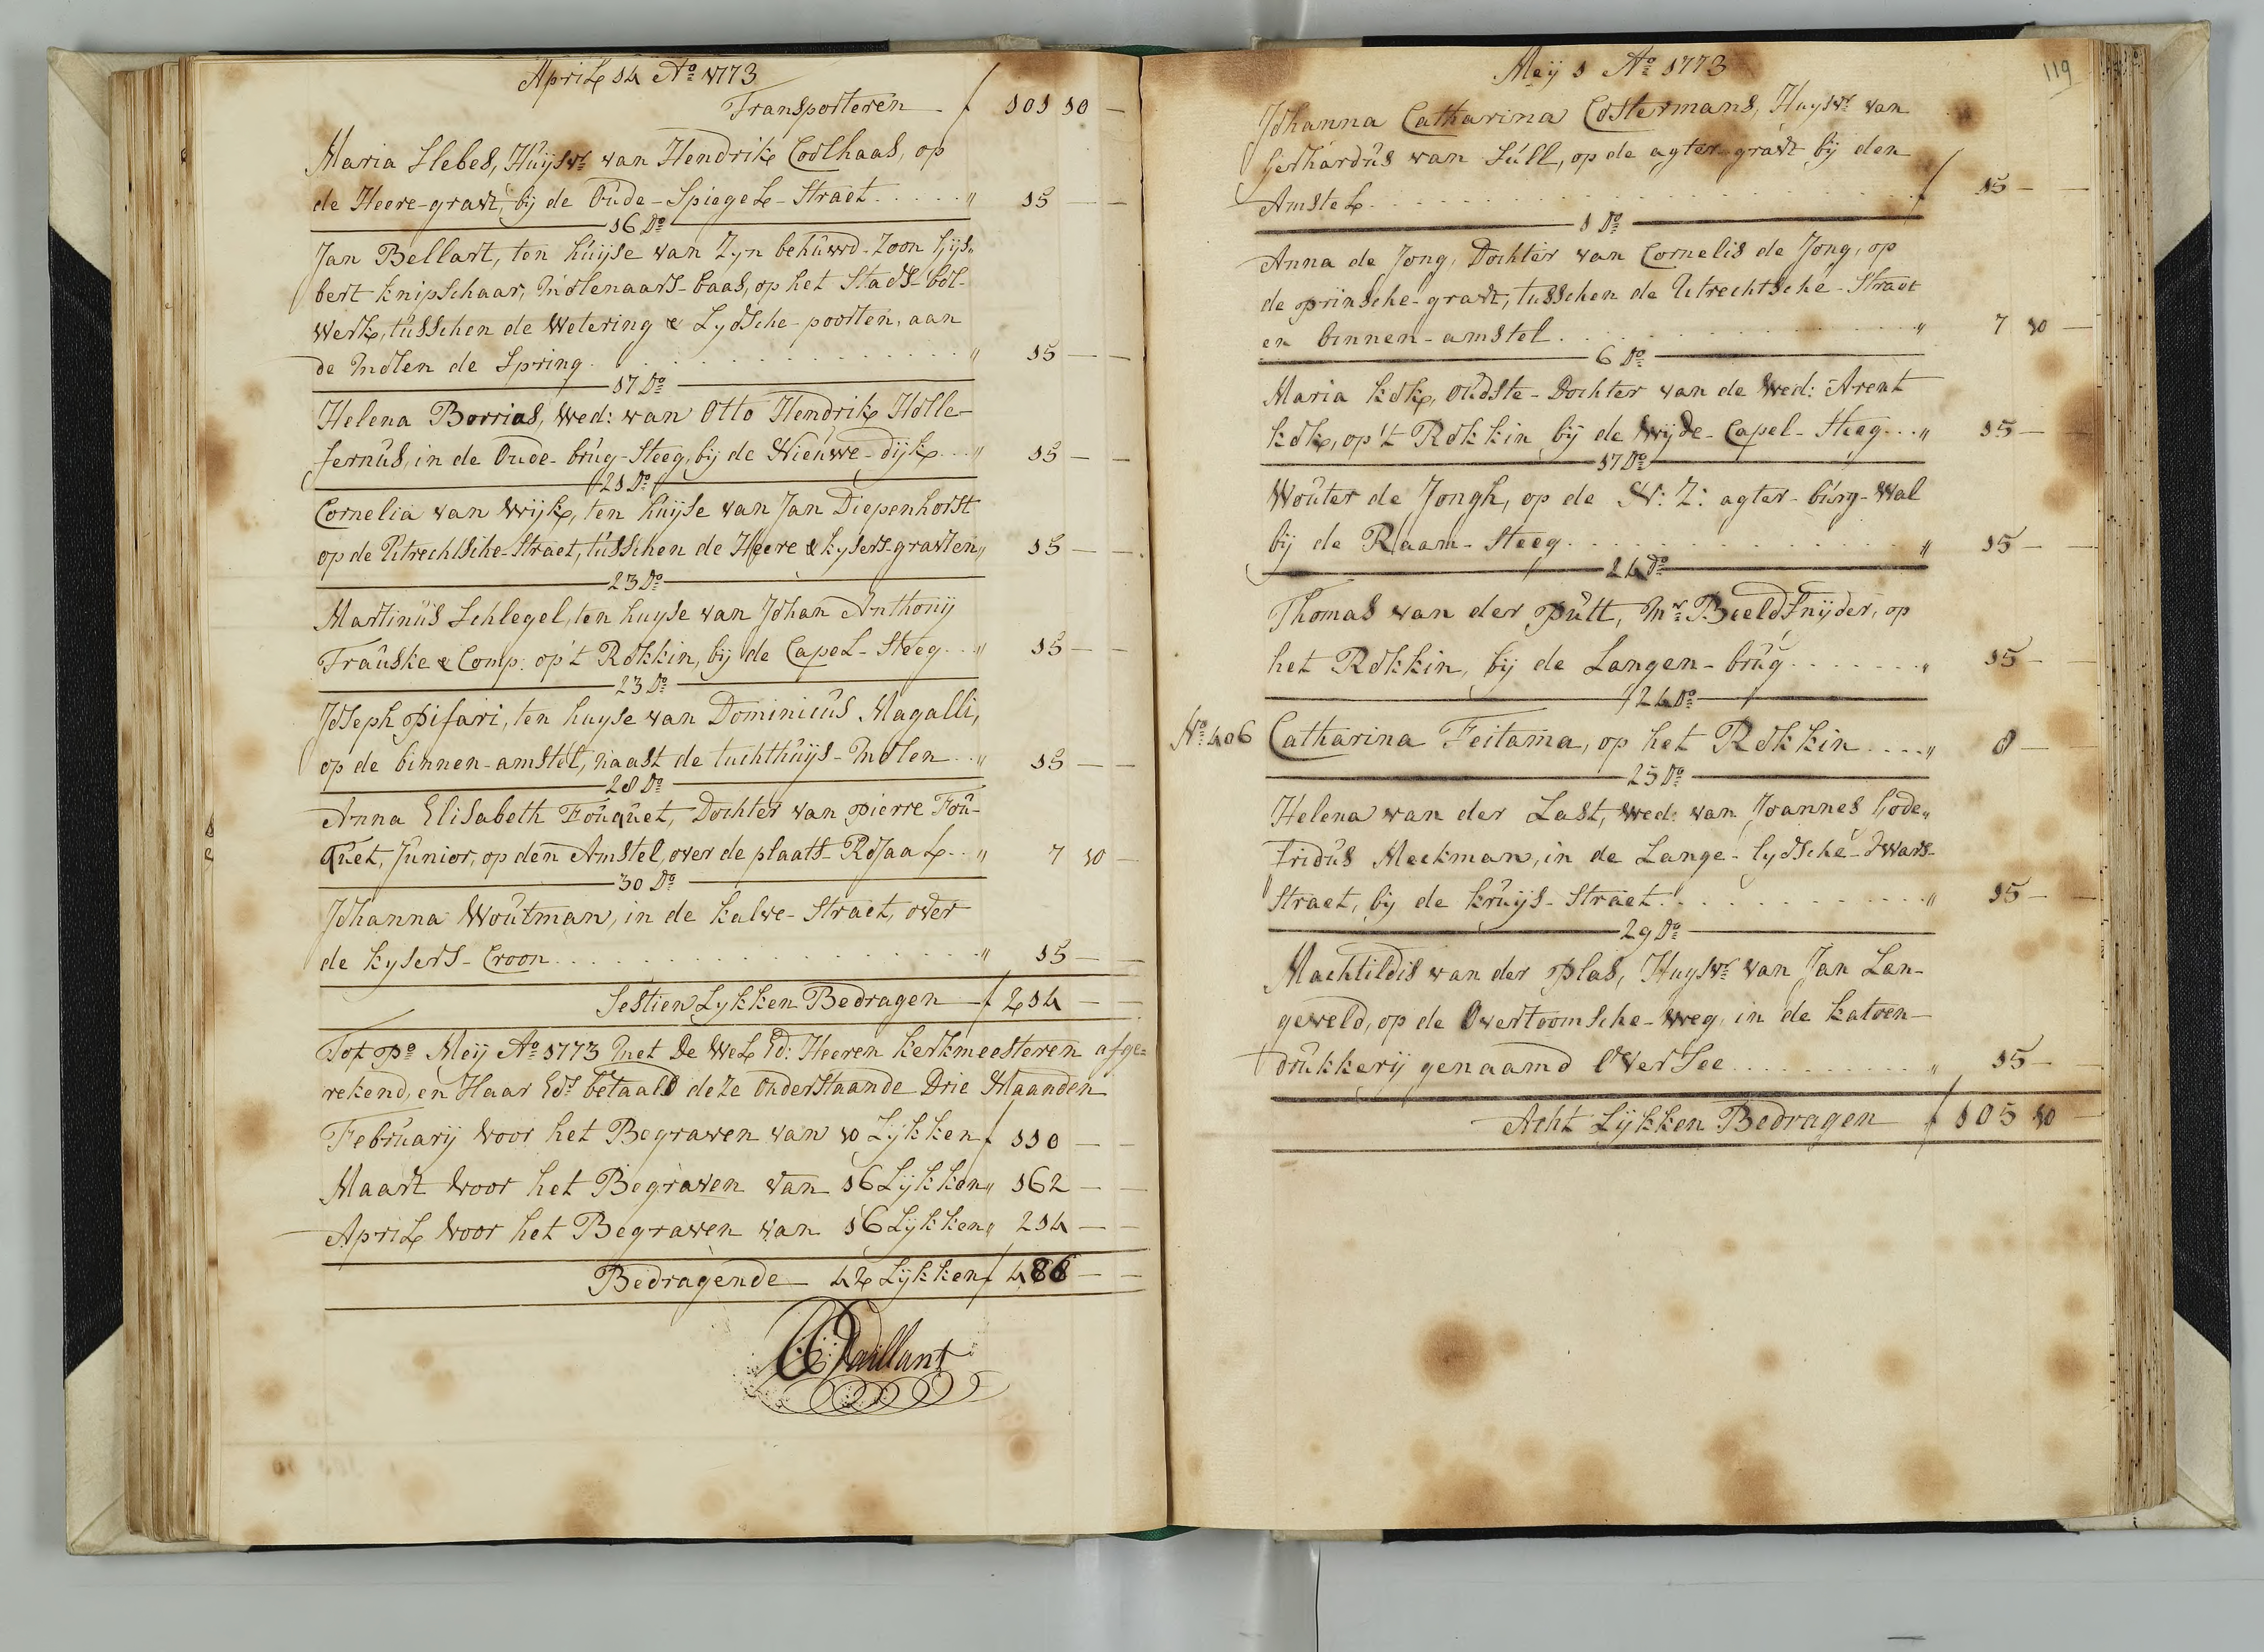 April 14 Aº 1773
Transporteren - f 101 10 —
Maria Slebes, Huysvr van Hendrik Coolhaas, op
de Heere-gravt, bij de Oude-Spiegel-Straet . . . . . „ 15 — —
16 Dº
Jan Bellart, ten huijse van Zyn behuwd-Zoon Gijs„
bert Knipschaar, Molenaars-baas, op het Stads-bol-
werk, tusschen de Wetering & Lydsche-poorten, aan
de Molen de Spring . . . . . „ 15 — —
17 Dº
Helena Borrias, Wed: van Otto Hendrik Holle-
fernus, in de Oude-brug-Steeg, bij de Nieuwe-dijk . . . „ 15 — —
21 Dº
Cornelia van Wijk, ten huijse van Jan Diepenhorst
op de Utrechtsche-Straet, tusschen de Heere & Kysers-gravten „ 15 — —
23 Dº
Martinus Schlegel, ten huyse van Johan Anthonij
Frauske & Comp. op't Rokkin, bij de Capel-Steeg . . „ 15 — —
23 Dº
Joseph Pifari, ten huyse van Dominicus Magalli,
op de binnen-amstel, naast de tuchthuijs-Molen . . „ 15 — —
28 Dº
Anna Elisabeth Fouquet, Dochter van Pierre Fou-
quet, Junior, op den Amstel, over de plaats-Rojaal . . „ 7 10 —
30 Dº
Johanna Woutman, in de Kalve-Straet, over
de Kysers-Croon . . . . . „ 15 — —
Sestien Lykken Bedragen — f 214 — —
Tot pº Meij Aº 1773 Met De Wel Ed: Heeren Kerkmeesteren afge-
rekend, en Haar Eds betaald deze Onderstaande Drie Maanden
Februarij voor het Begraven van 10 Lykken f 110 — —
Maart voor het Begraven van 16 Lijkken „ 162 — —
April voor het Begraven van 16 Lykken „ 214 — —
Bedragende — 42 Lijkken f 486 — —
Vaillant
119
Meij 1 Aº 1773
Johanna Catharina Costermans, Huysvr van
Gerhardus van Sull, op de agter-gravt bij den
Amstel . . . . . f 15 — —
1 Dº
Anna de Jong, Dochter van Cornelis de Jong, op
de prinsche-gravt, tusschen de Utrechtsche-Straet
en binnen-amstel . . . . . „ 7 10 —
6 Dº
Maria Kok, Oudste-Dochter van de Wed: Arent
Kok, op't Rokkin bij de Wyde-Capel-Steeg . . . „ 15 —
17 Dº
Wouter de Jongh, op de N: Z: agter-burg-Wal
bij de Raam-Steeg . . . . . „ 15 — —
24 Dº
Thomas van der Putt, Mr Beeldsnijder, op
het Rokkin, bij de Langen-brug . . . . . „ 15 — —
24 Dº
Nº 406 Catharina Feitama, op het Rokkin . . . . „ 8 —
25 Dº
Helena van der Last, Wed: van Joannes Gode„
fridus Meekman, in de Lange-lydsche-Dwars-
Straet, bij de Kruijs-Straet . . . . . „ 15 — —
29 Dº
Machtildis van der Plas, Huysvr van Jan Lan-
geveld, op de Overtoomsche-Weg, in de Katoen-
drukkerij genaamd OverSee . . . . . „ 15 —
Acht Lykken Bedragen f 105 10 —